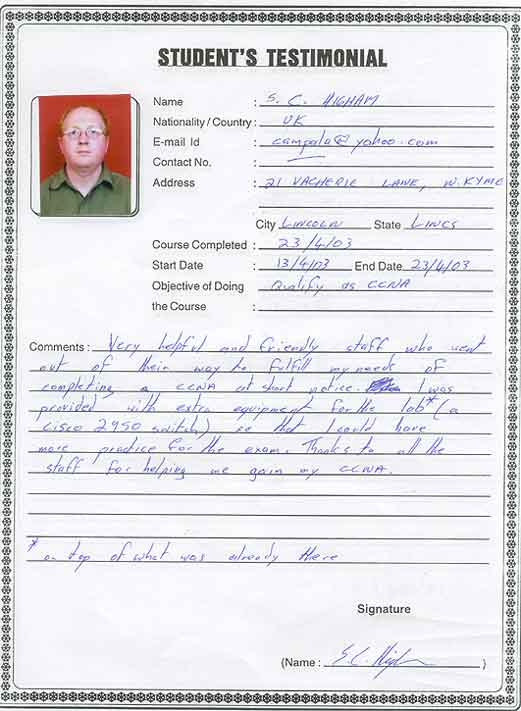 STUDENT'S TESTIMONIAL
Name : S. C. HIGHAM
Nationality / Country : UK
E-mail Id : campala@yahoo.com
Contact No. : —
Address : 21 VACHERIE LANE, N. KYME
City LINCOLN State LINCS
Course Completed : 23/4/03
Start Date : 13/4/03 End Date 23/4/03
Objective of Doing : Qualify as CCNA
the Course :
Comments : Very helpful and friendly staff who went
out of their way to fulfill my needs of
completing a CCNA at short notice. I was
provided with extra equipment for the lab* (a
cisco 2950 switch) so that I could have
more practice for the exam. Thanks to all the
staff for helping me gain my CCNA.
* on top of what was already there
Signature
(Name : S.C. Higham )